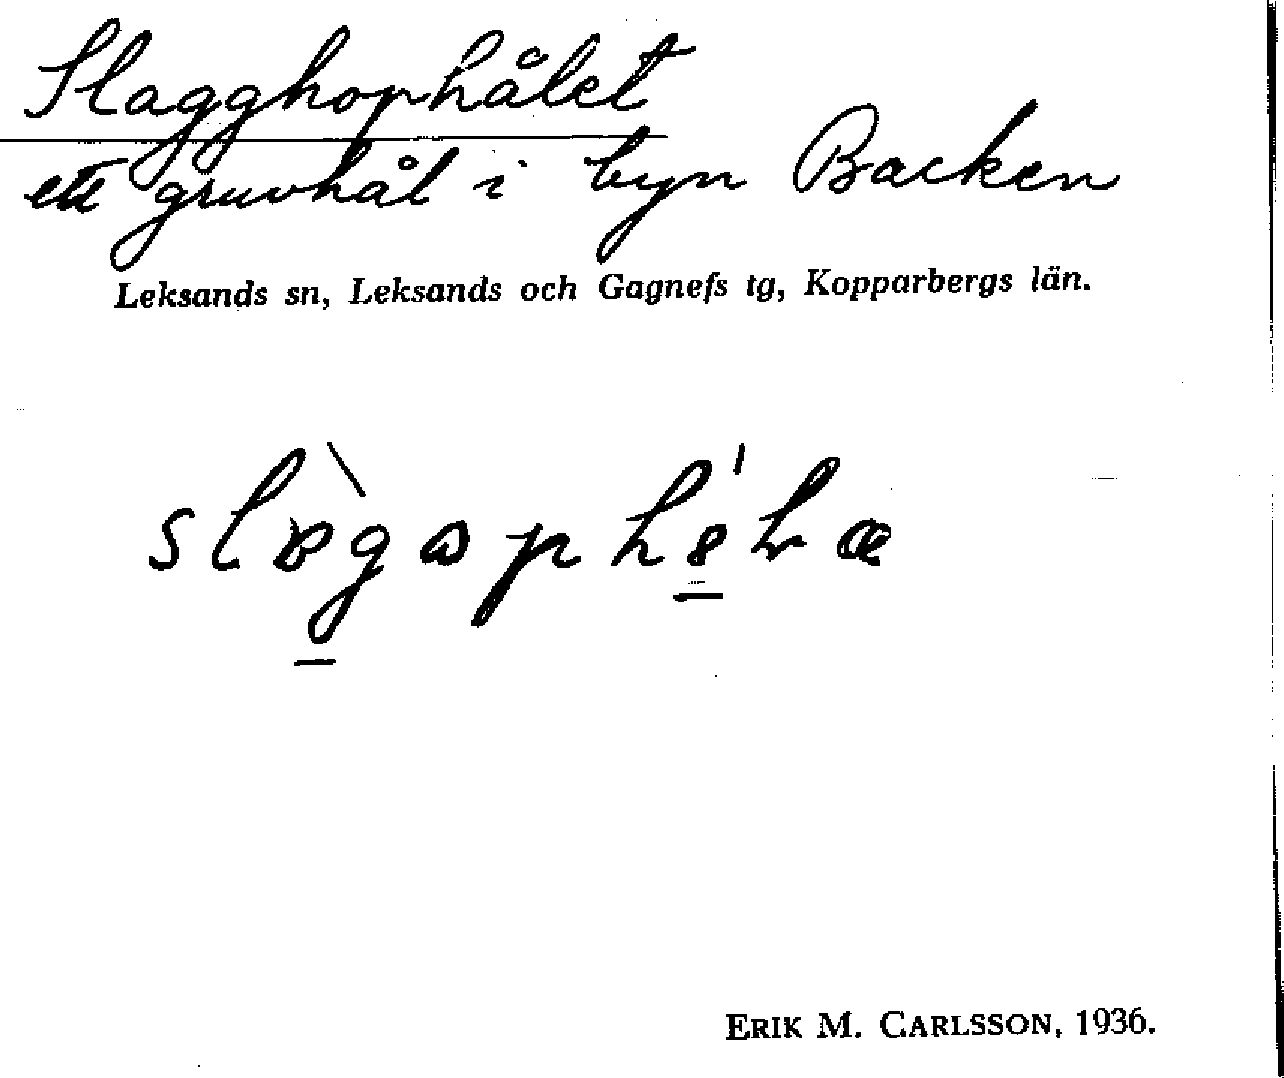 Slagghophålet
ett gruvhål i byn Backen
Leksands sn, Leksands och Gagnefs tg, Kopparbergs län.
ERIK M. CARLSSON, 1936.